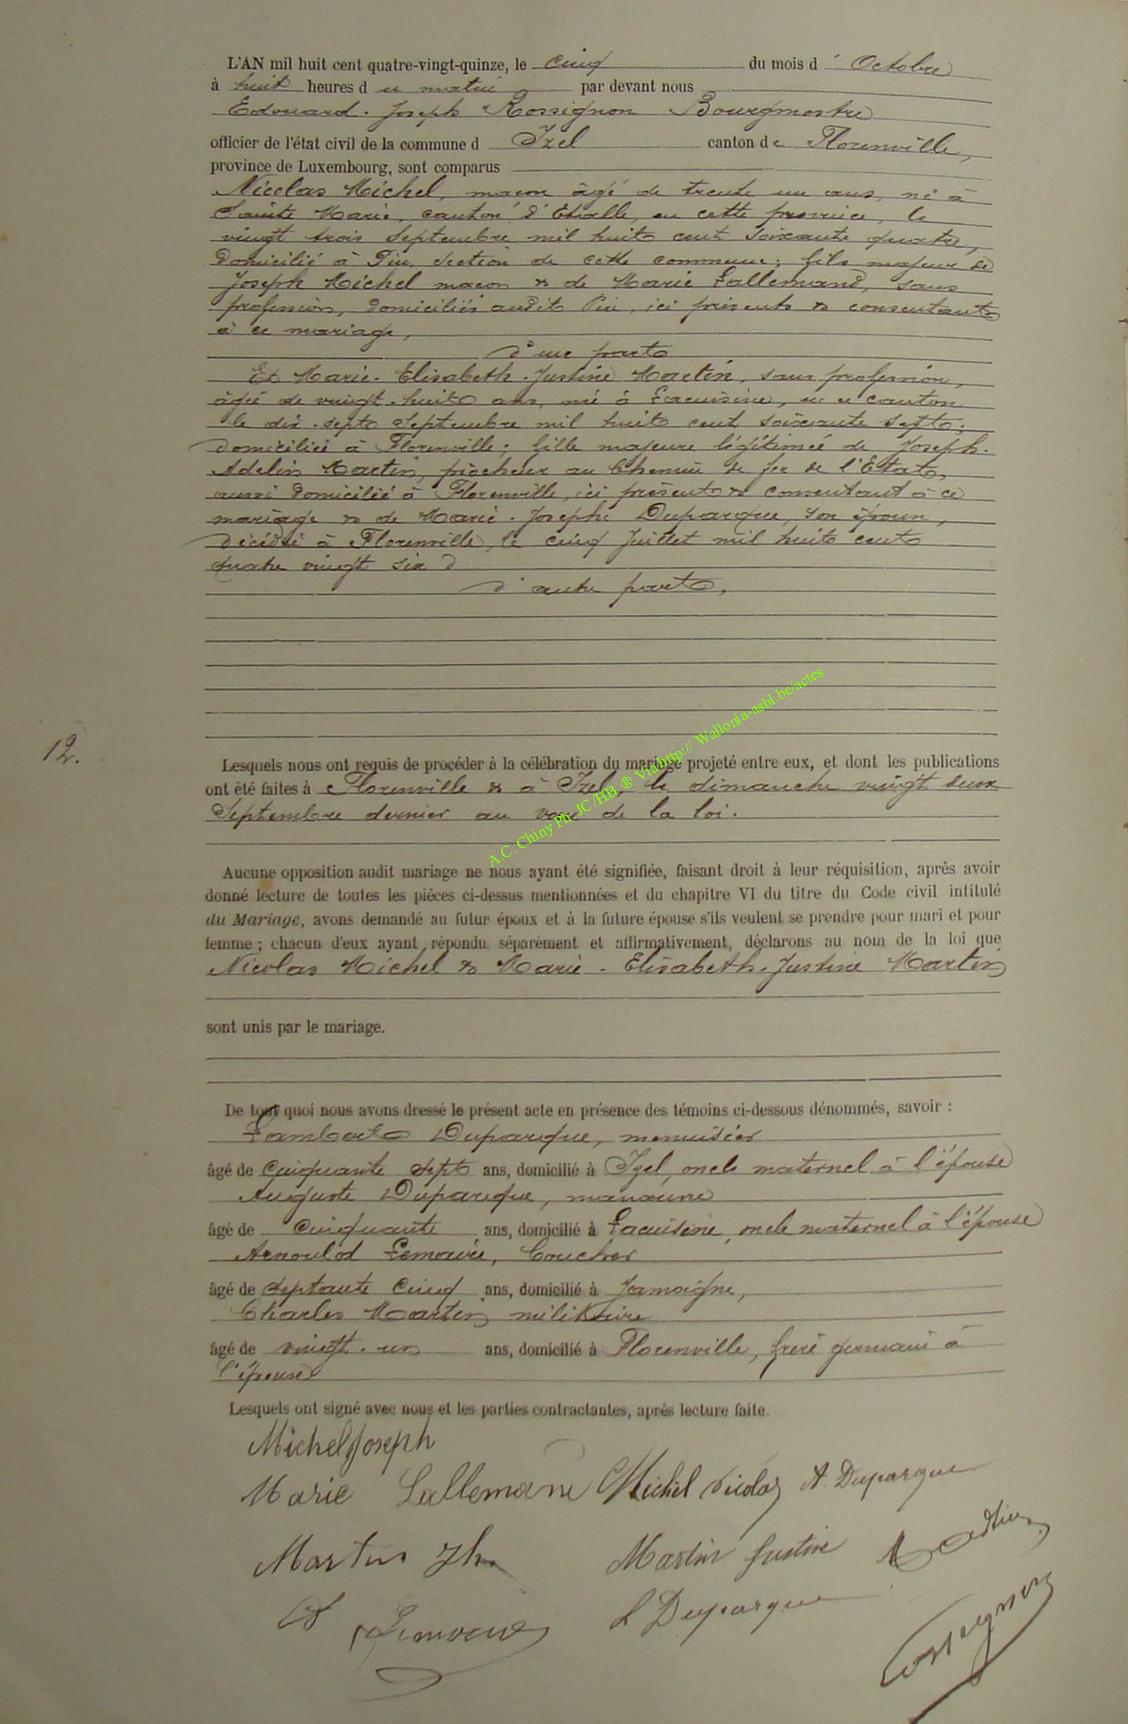 L'AN mil huit cent quatre-vingt-quinze, le cinq du mois d' Octobre
à huit heures du matin par devant nous
Edouard-Joseph Rossignon Bourgmestre
officier de l'état civil de la commune d Izel canton de Florenville,
province de Luxembourg, sont comparus
Nicolas Michel, maçon âgé de trente un ans, né à
Sainte Marie, canton d'Etalle, en cette province, le
vingt trois Septembre mil huit cent soixante quatre,
domicilié à Pin, section de cette commune; fils majeur de
Joseph Michel maçon & de Marie Lallemand, sans
profession, domiciliés audit Pin, ici présents & consentants
à ce mariage,
d'une part
Et Marie-Elisabeth-Justine Martin, sans profession,
âgée de vingt-huit ans, née à Lacuisine, en ce canton
le dix-sept Septembre mil huit cent soixante sept;
domiciliée à Florenville; fille majeure légitimée de Joseph-
Adelin Martin, piocheur au Chemin de fer de l'Etat,
aussi domicilié à Florenville, ici présent & consentant à ce
mariage & de Marie-Josephe Duparque, son épouse,
décédée à Florenville, le cinq Juillet mil huit cent
quatre vingt six
d'autre part,
12.
Lesquels nous ont requis de procéder à la célébration du mariage projeté entre eux, et dont les publications
ont été faites à Florenville & à Izel, le dimanche vingt deux
Septembre dernier au vœu de la loi.
A.C. Chiny Ph JC/HB ® Via http:// Wallonia-asbl.be/actes
Aucune opposition audit mariage ne nous ayant été signifiée, faisant droit à leur réquisition, après avoir
donné lecture de toutes les pièces ci-dessus mentionnées et du chapitre VI du titre du Code civil intitulé
du Mariage, avons demandé au futur époux et à la future épouse s'ils veulent se prendre pour mari et pour
femme ; chacun d'eux ayant répondu séparément et affirmativement, déclarons au nom de la loi que
Nicolas Michel & Marie-Elisabeth-Justine Martin
sont unis par le mariage.
De tout quoi nous avons dressé le présent acte en présence des témoins ci-dessous dénommés, savoir :
Lambert Duparque, menuisier
âgé de Cinquante sept ans, domicilié à Izel, oncle maternel à l'épouse
Auguste Duparque, manœuvre
âgé de Cinquante ans, domicilié à Lacuisine, oncle maternel à l'épouse
Arnould Lemaire,
âgé de septante cinq ans, domicilié à Jamoigne,
Charles Martin, militaire
âgé de vingt-un ans, domicilié à Florenville, frère germain à
l'épouse
Lesquels ont signé avec nous et les parties contractantes, après lecture faite.
Michel Joseph
Marie Lallemand Michel Nicolas A. Duparque
Martin Jh. Martin Justine Martin
L Duparque
Rossignon